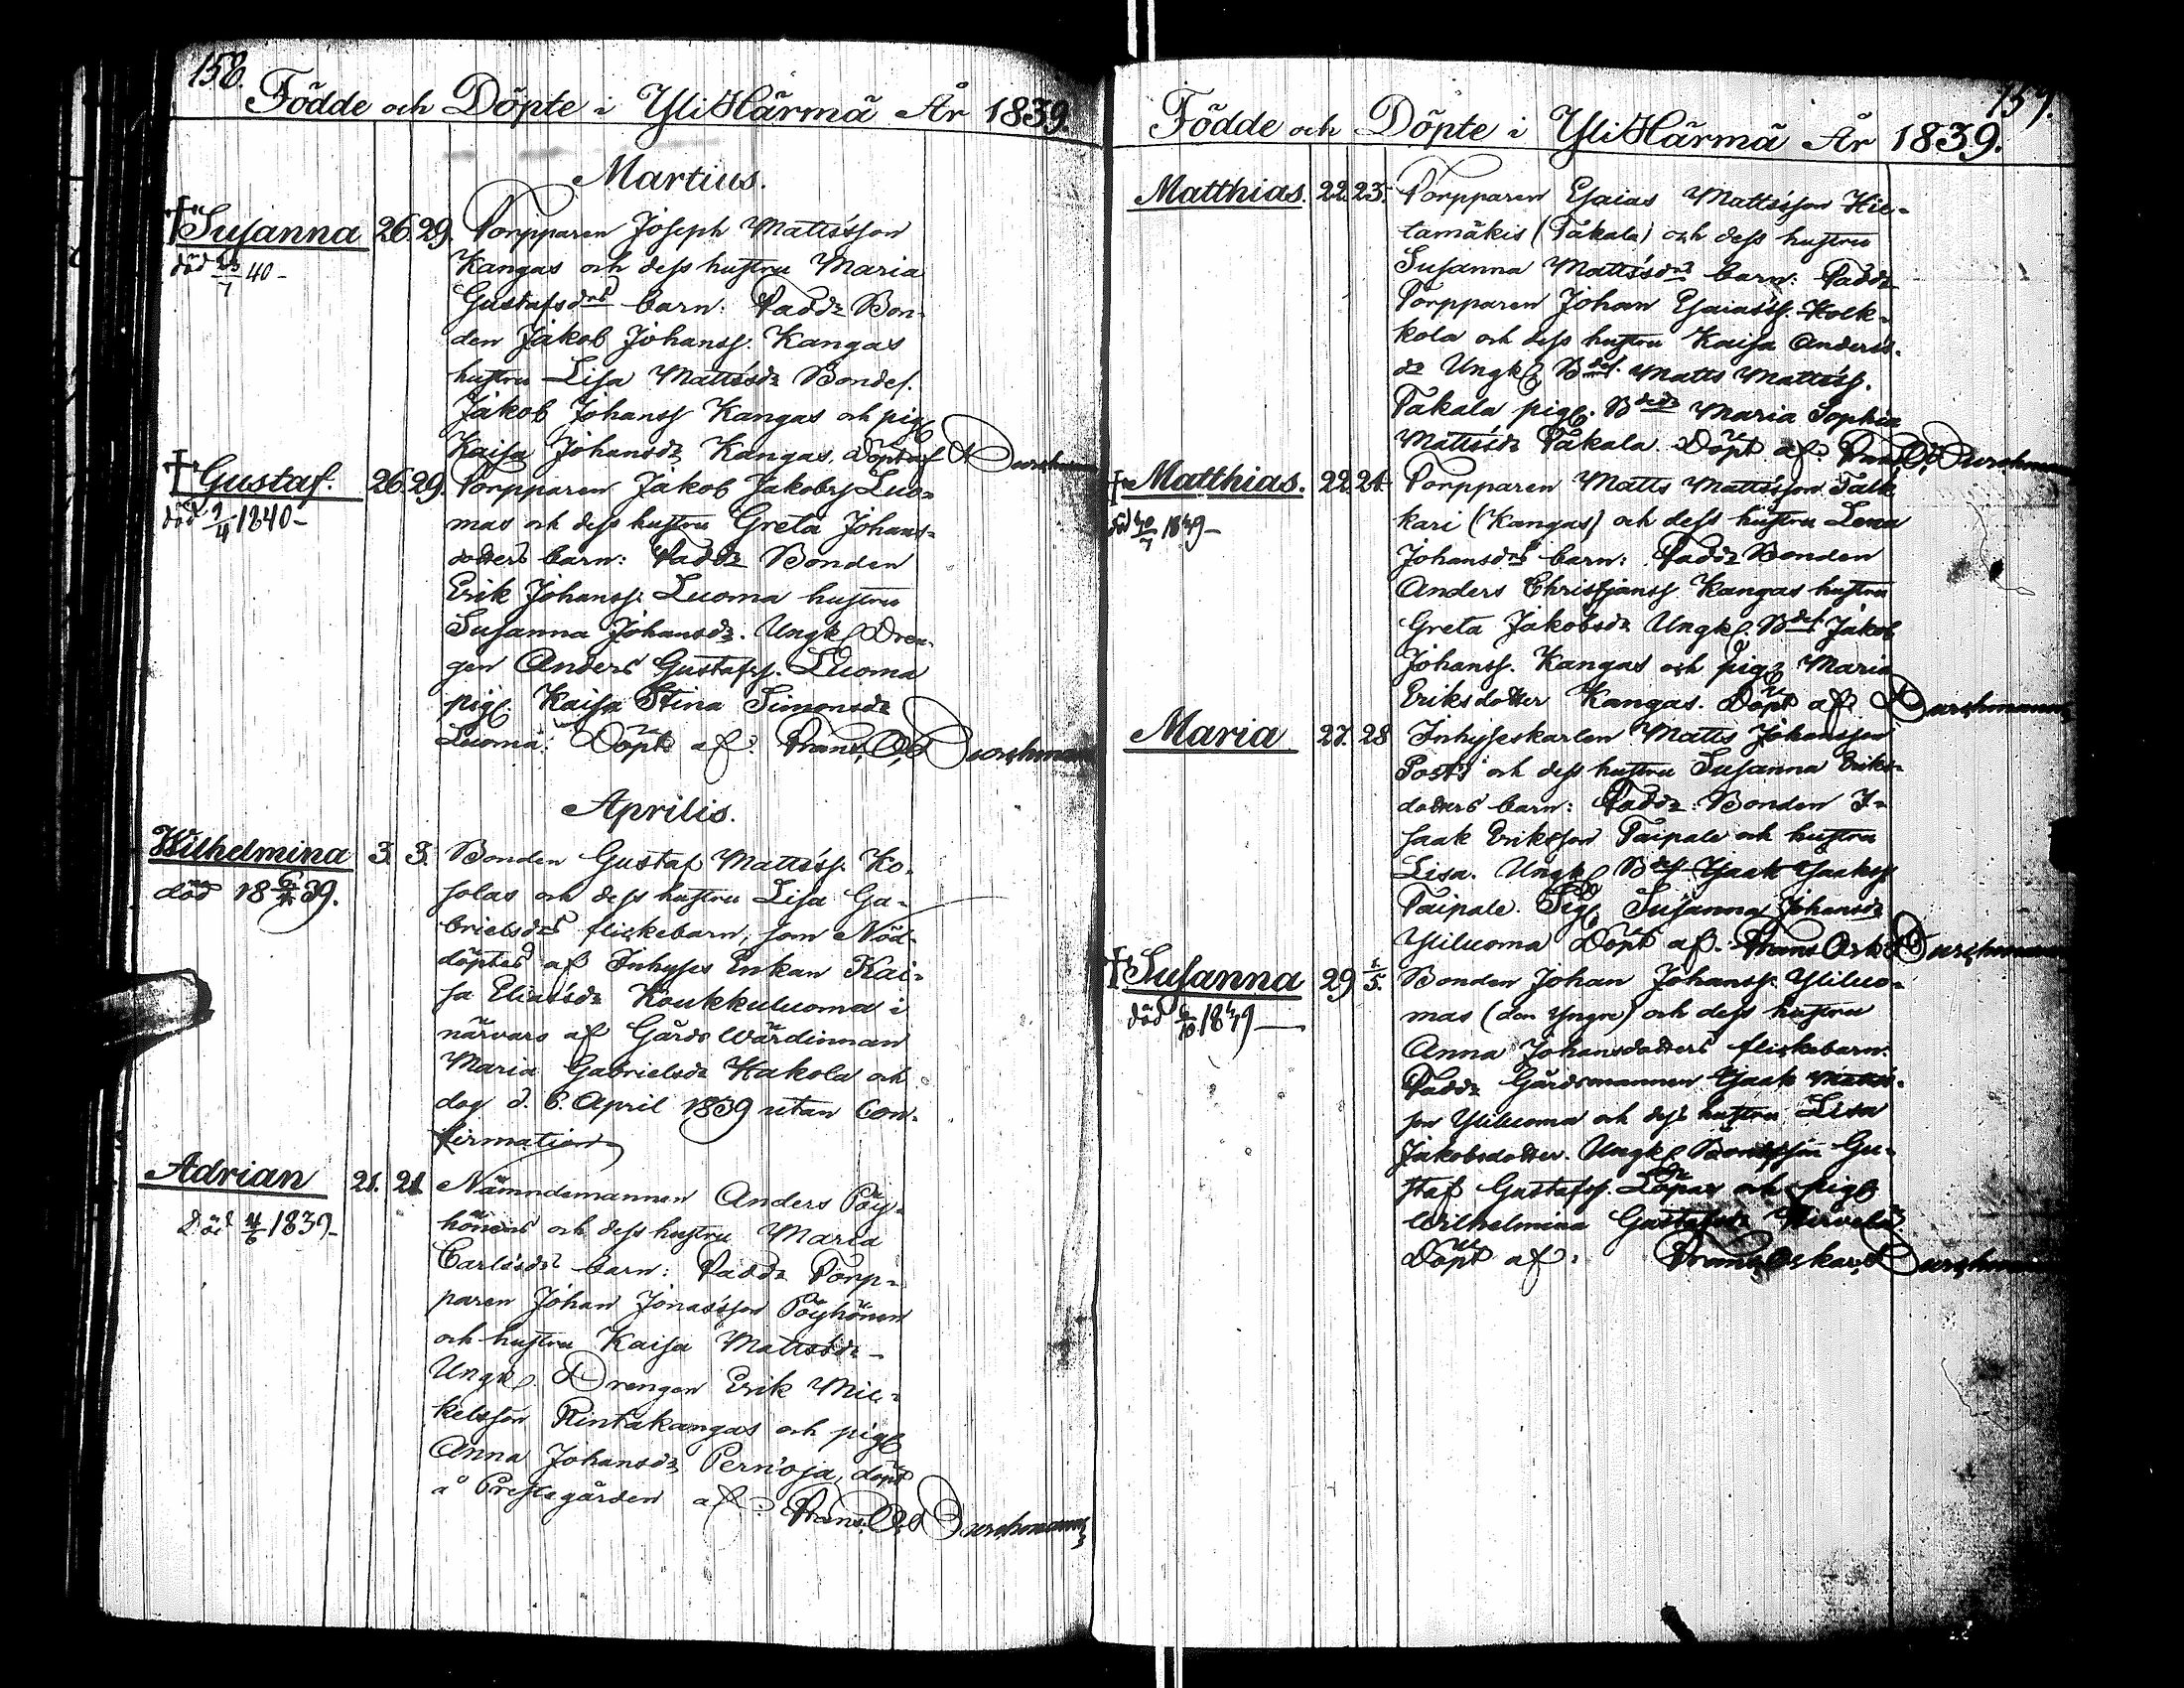 158.
Födde och Döpte i YliHärmä År 1839.
Martius.
†Susanna 26. 29. Torpparen Joseph Mattsson
död 23/7 40- Kangas och dess hustru Maria
Gustafsdrs barn: Faddr Bon-
den Jakob Johanss. Kangas
hustru Lisa Mattsdr Bondes.
Jakob Johanss Kangas och pig.
Kaisa Johansdr Kangas. döpt af Durchman
†Gustaf. 26. 29. Torpparen Jakob Jakobss Luo-
död 2/4 1840- mas och dess hustru Greta Johans-
dotters barn: Faddr Bonden
Erik Johanss. Luoma hustru
Susanna Johansdr. Ungk. Dren-
gen Anders Gustafss. Luoma
pig. Kaisa Stina Simonsdr
Luoma. Döpt af: Frans. O. Durchman
Aprilis.
Wilhelmina 3. 3. Bonden Gustaf Mattss. Ko-
död 18 6/4 39. solas och dess hustru Lisa Ga-
brielsdrs flickebarn, som Nöd-
döptes af Inhyses Enkan Kai-
sa Eliasdr Koukkuluoma i
närvaro af Gårds Wärdinnan
Maria Gabrielsdr Hakola och
dog d. 6. April 1839 utan Con-
firmation
Adrian 21. 21. Nämndemannen Anders Pöy-
Död 4/6 1839- hönens och dess hustru Maria
Carlsdrs barn: Faddr Torp-
paren Johan Jonasson Pöyhönen
och hustru Kaisa Mattsdr-
Ungk. Drengen Erik Mic-
kelsson Rintakangas och pig.
Anna Johansdr Pernoja, döpt
å Prestegården af: Frans. O. Durchman
157.
Födde och Döpte i YliHärmä År 1839.
Matthias. 22. 23. Torpparen Esaias Mattsson Hie-
tamäkis (Takala) och dess hustru
Susanna Mattsdrs barn: Faddr
Torpparen Johan Esaiass. Kolk-
kola och dess hustru Kaisa Anders-
dr Ungk. Bdes. Matts Mattss.
Takala pig. Bdedr Maria Sophia
Mattsdr Takala. Döpt af: Frans. O. Durchman
†Matthias. 22. 24. Torpparen Matts Mattsson Talk
död 40/7 1849- kari (Kangas) och dess hustru Lena
Johansdrs barn: Faddr Bonden
Anders Christjanss Kangas hustru
Greta Jakobsdr Ungk. Bdes Jakob
Johanss. Kangas och pig. Maria
Eriksdotter Kangas. Döpt af: Durchman
Maria 27. 28 Inhyseskarlen Matts Johansson
Posti och dess hustru Susanna Eriks-
dotters barn: Faddr: Bonden I-
saak Eriksson Taipale och hustru
Lisa. Ungk. Bdes Isaak Isaakss
Taipale. Pig. Susanna Johansdr
Yliluoma Döpt af. Frans Osk. Durchman
†Susanna 29 1/5. Bonden Johan Johanss. Yliluo-
död 6/10 1849- mas (den yngre) och dess hustru
Anna Johansdotters flickebarn.
Faddr Gårdsmannen Isaak Matts-
son Yliluoma och dess hustru Lisa
Jakobsdotter. Ungk. Bondesson Gu-
staf Gustafss. Lopax och pig.
Wilhelmina Gustafsdr Hirvelä.
Döpt af: Frans Oskar Durchman